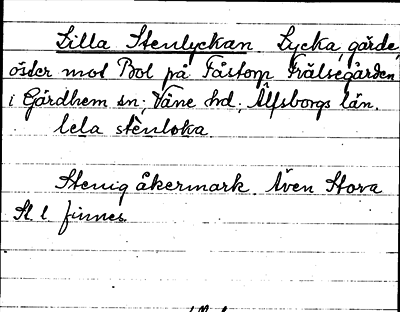 Lilla Stenlyckan. Lycka, gärde,
öster mot Bol på Tåstorp Frälsegården
i Gärdhem sn; Väne hd; Älfsborgs län.
lela stenloka.
Stenig åkermark. Även Stora
St. l. finnes.